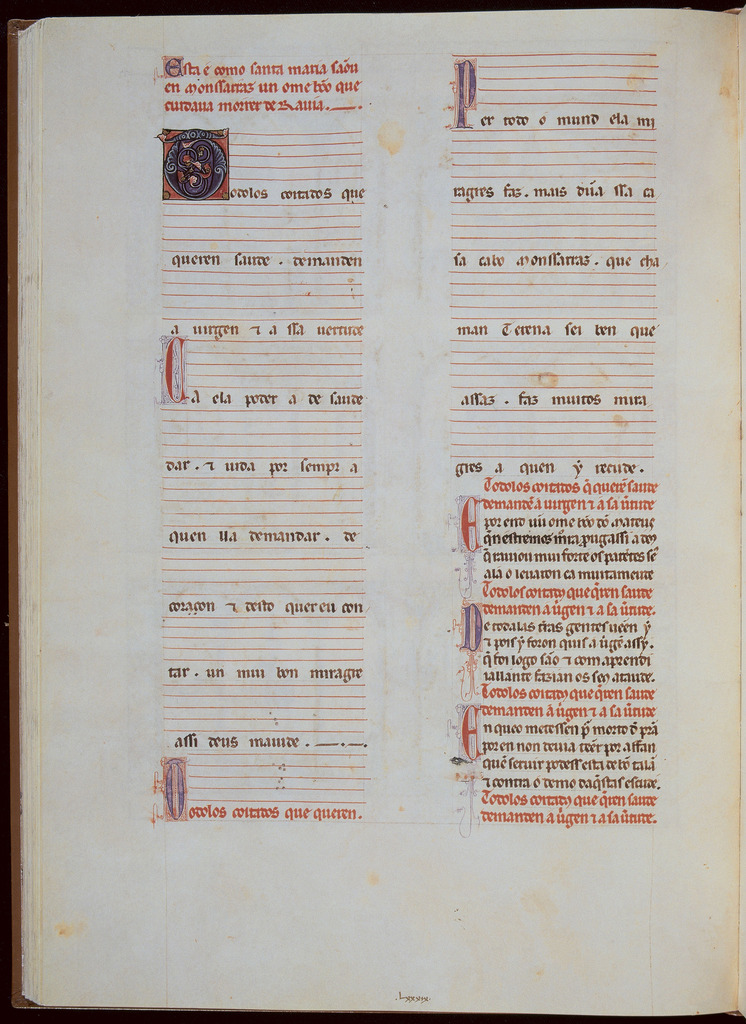 Esta é como santa maria sãou
en monssarraz un ome bõo que
cuidaua morrer de rauia.
Todolos coitados que
queren saude. demanden
a uirgen ⁊ a ssa uertude
Ca ela poder a de saude
dar. ⁊ uida por sempr a
quen lla demandar. de
coraçon ⁊ desto quereu con
tar. un mui bon miragre
assi deus maiude.
Todolos coitados que queren.
Per todo o mund ela mi
ragres faz. mais dũa ssa ca
sa cabo monssarraz. que cha
man Terena sei ben que
assaz. faz muitos mira
gres a quen y recude.
Todolos coitados q̃ querẽ saude
demandẽ á uirgen ⁊ a sa ũtude
E por end un ome bõo
q̃ rauiou mui forte os parẽtes sẽ
ala o leuaron ca muitamente
Todolos coitados que q̃ren saude
demanden a ũgen ⁊ a sa ũtude.
De todalas trãs gentes ueẽn y
⁊ pois y foron a ũgẽ assy.
q̃ foi logo são ⁊ com aprendi
ia llante fazian os seus ataude.
Todolos coitados que q̃ren saude
demanden á ũgen ⁊ a sa ũtude
En queo metessen p̃ morto
poren non deuia tẽer por affan
quẽ seruir podess esta de bõ talã
⁊ contra o demo daq̃stas escude.
Todolos coitados que q̃ren saude
demanden a ũgen ⁊ a sa ũtude.